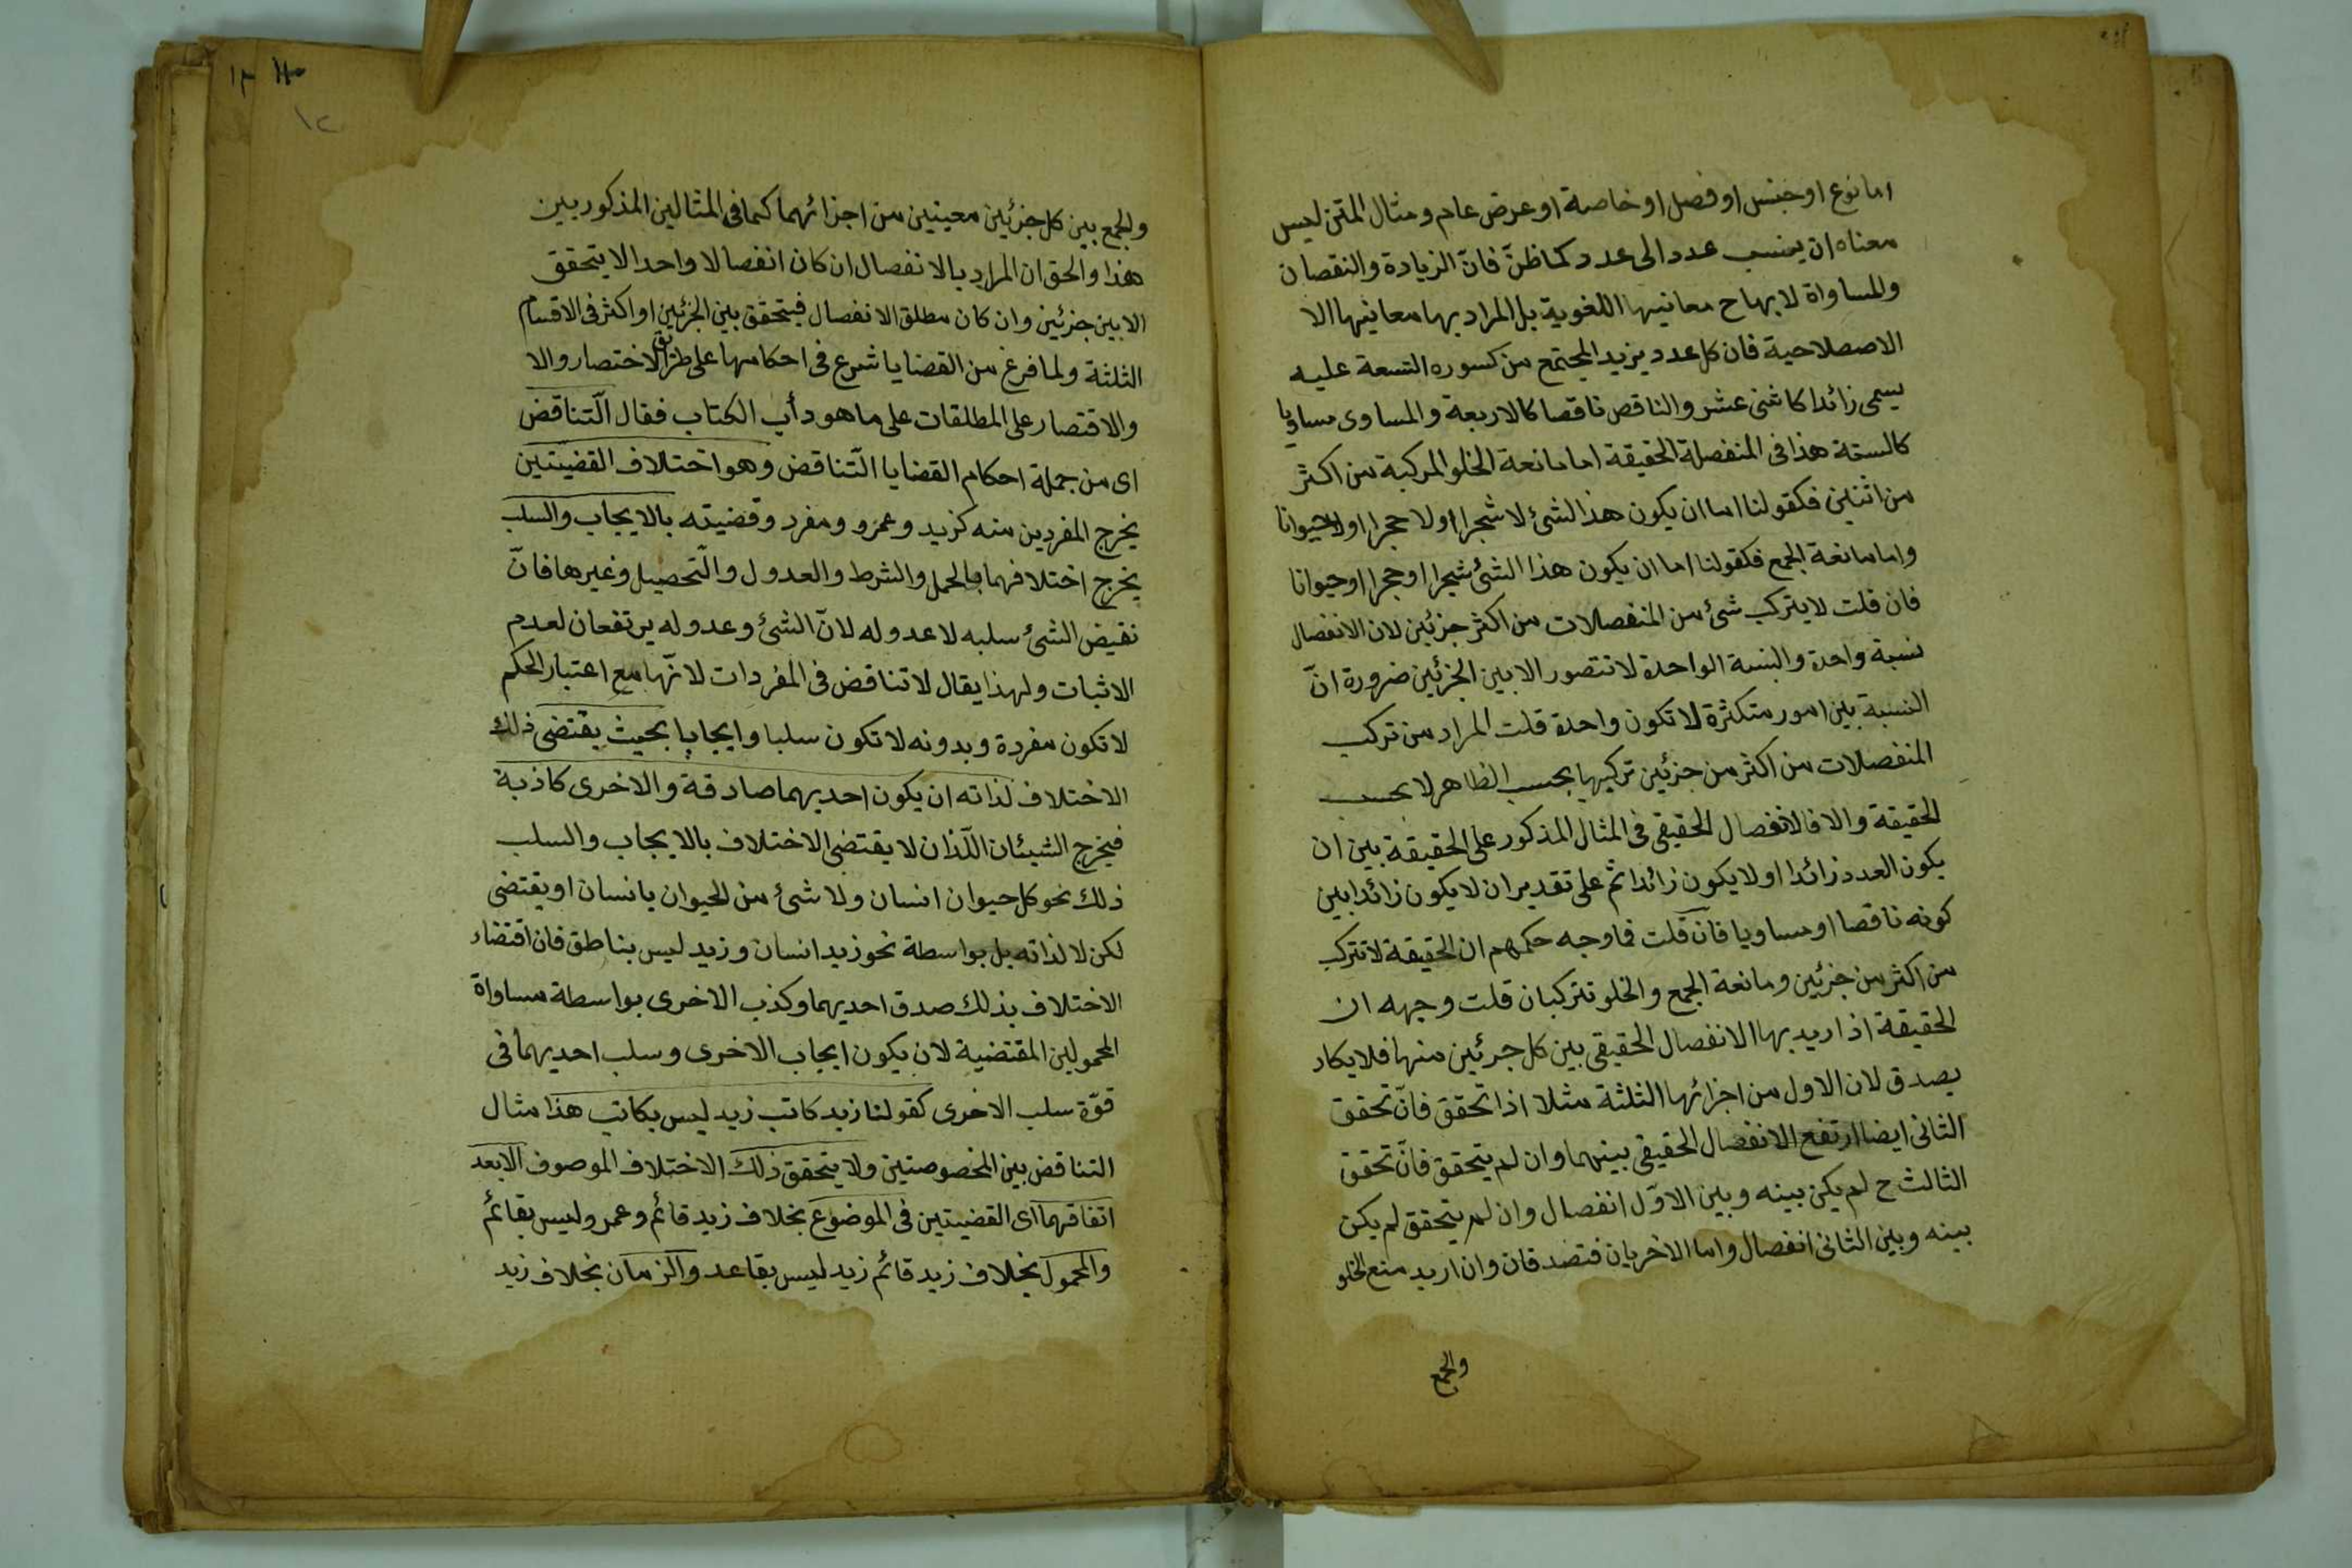 اما نوع او جنس او فصل او خاصة او عرض عام ومثال المتن ليس
معناه ان ينسب عدد الى عدد كما ظنّ فانّ الزيادة والنقصان
والمساواة لا بها ح معانيها اللغوية بل المراد بها معانيها الا
الاصطلاحية فان كل عدد يزيد المجتمع من كسوره التسعة عليه
يسمى زائدا كاثنى عشر والناقص ناقصا كالاربعة والمساوى مساويا
كالستة هذا فى المنفصلة الحقيقة اما مانعة الخلو المركبة من اكثر
من اثنين فكقولنا اما ان يكون هذا الشئ لا شجرا او لا حجرا او لا حيوانا
واما مانعة الجمع فكقولنا اما ان يكون هذا الشئ شجرا او حجرا او حيوانا
فان قلت لا يتركب شئ من المنفصلات من اكثر جزئين لان الانفصال
نسبة واحدة والنسبة الواحدة لا تتصور الا بين الجزئين ضرورة انّ
النسبة بين امور متكثرة لا تكون واحدة قلت المراد من تركب
المنفصلات من اكثر من جزئين تركيبها بحسب الظاهر لا بحسب
الحقيقة والا فالانفصال الحقيقى فى المثال المذكور على الحقيقة بين ان
يكون العدد زائدا او لا يكون زائدا ثم على تقدير ان لا يكون زائدا بين
كونه ناقصا او مساويا فان قلت فما وجه حكمهم ان الحقيقة لا تتركب
من اكثر من جزئين ومانعة الجمع والخلو تتركبان قلت وجهه ان
الحقيقة اذا اريد بها الانفصال الحقيقى بين كل جزئين منها فلا يكاد
يصدق لان الاول من اجزائها الثلثة مثلا اذا تحقق فانّ تحقق
الثانى ايضا ارتفع الانفصال الحقيقى بينهما وان لم يتحقق فانّ تحقق
الثالث ح لم يكن بينه وبين الاوّل انفصال وان لم يتحقق لم يكن
بينه وبين الثانى انفصال واما الاخريان فتصدقان وان اريد منع الخلو
والجمع
١٣
١٢
والجمع بين كل جزئين معينين من اجزائهما كما فى المثالين المذكورين
هذا والحق ان المراد بالانفصال ان كان انفصالا واحدا لا يتحقق
الا بين جزئين وان كان مطلق الانفصال فيتحقق بين الجزئين او اكثر فى الاقسام
الثلثة ولما فرغ من القضايا شرع فى احكامها على طريق الاختصار والا
والاقتصار على المطلقات على ما هو دأب الكتاب فقال التّناقض
اى من جملة احكام القضايا التّناقض وهو اختلاف القضيتين
يخرج المفردين منه كزيد وعمرو ومفرد وقضيته بالايجاب والسلب
يخرج اختلافهما بالحمل والشرط والعدول والتّحصيل وغيرها فانّ
نقيض الشئ سلبه لا عدوله لانّ الشئ وعدوله يرتفعان لعدم
الاثبات ولهذا يقال لا تناقض فى المفردات لانّها مع اعتبار الحكم
لا تكون مفردة وبدونه لا تكون سلبا وايجابا بحيث يقتضى ذلك
الاختلاف لذاته ان يكون احديهما صادقة والاخرى كاذبة
فيخرج الشيئان اللّذان لا يقتضى الاختلاف بالايجاب والسلب
ذلك نحو كل حيوان انسان ولا شئ من الحيوان بانسان او يقتضى
لكن لا لذاته بل بواسطة نحو زيد انسان وزيد ليس بناطق فان اقتضاء
الاختلاف بذلك صدق احديهما وكذب الاخرى بواسطة مساواة
المحمولين المقتضية لان يكون ايجاب الاخرى وسلب احديهما فى
قوّة سلب الاخرى كقولنا زيد كاتب زيد ليس بكاتب هذا مثال
التناقض بين المخصوصتين ولا يتحقق ذلك الاختلاف الموصوف الا بعد
اتفاقهما اى القضيتين فى الموضوع بخلاف زيد قائم وعمرو ليس بقائم
والمحمول بخلاف زيد قائم زيد ليس بقاعد والزمان بخلاف زيد